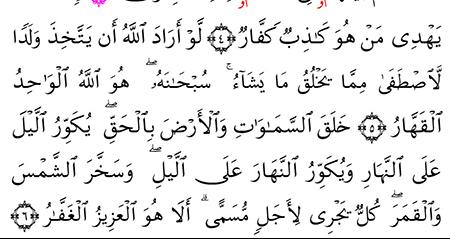 يَهْدِى مَنْ هُوَ كَـٰذِبٌ كَفَّارٌ ۝٤ لَّوْ أَرَادَ ٱللَّهُ أَن يَتَّخِذَ وَلَدًا
لَّٱصْطَفَىٰ مِمَّا يَخْلُقُ مَا يَشَآءُ ۚ سُبْحَـٰنَهُۥ ۖ هُوَ ٱللَّهُ ٱلْوَٰحِدُ
ٱلْقَهَّارُ ۝٥ خَلَقَ ٱلسَّمَـٰوَٰتِ وَٱلْأَرْضَ بِٱلْحَقِّ ۖ يُكَوِّرُ ٱلَّيْلَ
عَلَى ٱلنَّهَارِ وَيُكَوِّرُ ٱلنَّهَارَ عَلَى ٱلَّيْلِ ۖ وَسَخَّرَ ٱلشَّمْسَ
وَٱلْقَمَرَ ۖ كُلٌّ يَجْرِى لِأَجَلٍ مُّسَمًّى ۗ أَلَا هُوَ ٱلْعَزِيزُ ٱلْغَفَّـٰرُ ۝٦